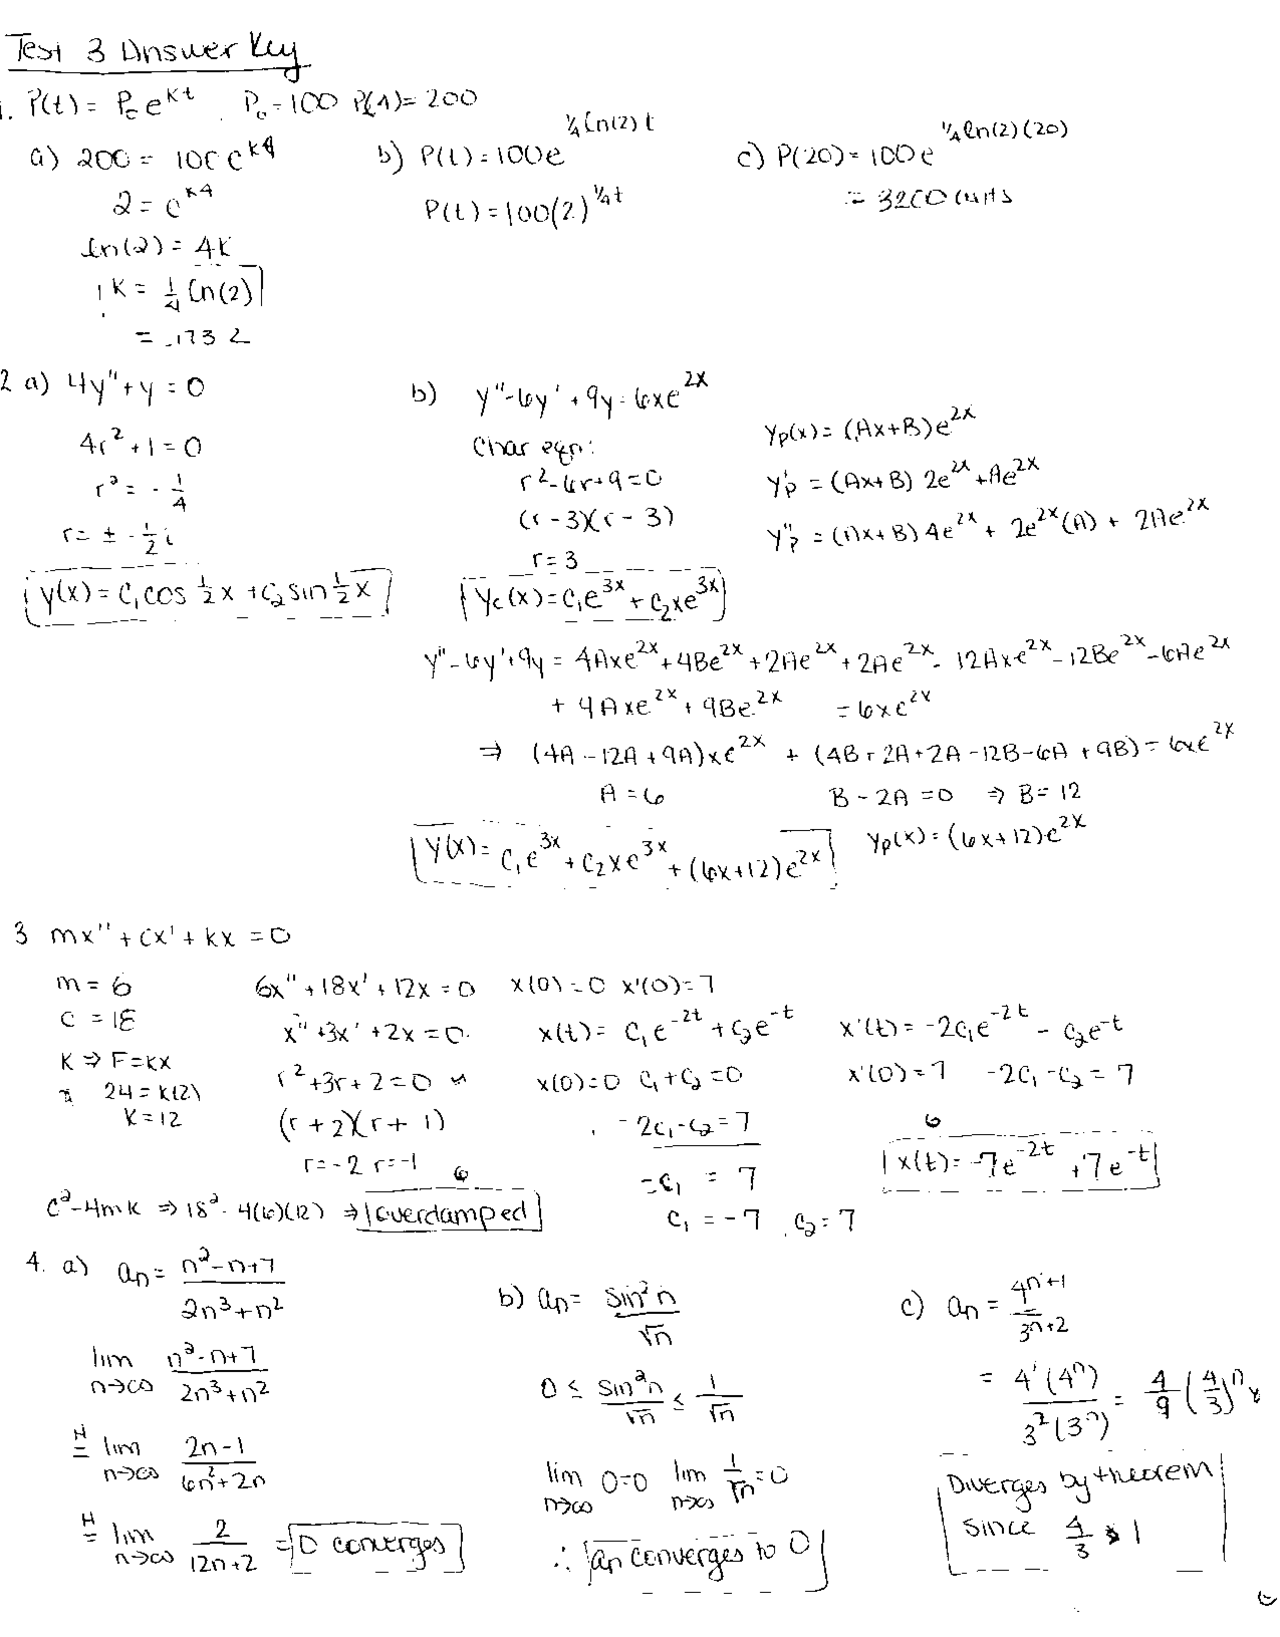 Test 3 Answer Key
1. P(t) = P₀e^{kt} P₀ = 100 P(4) = 200
a) 200 = 100e^{k4}
2 = e^{k4}
ln(2) = 4k
k = 1/4 ln(2)
= .1732
b) P(t) = 100e^{1/4 ln(2) t}
P(t) = 100(2)^{1/4 t}
c) P(20) = 100e^{1/4 ln(2)(20)}
= 3200 units
2 a) 4y" + y = 0
4r² + 1 = 0
r² = -1/4
r = ± -1/2 i
y(x) = c₁cos 1/2 x + c₂ sin 1/2 x
b) y" - 6y' + 9y = 6xe^{2x}
Char eqn:
r² - 6r + 9 = 0
(r - 3)(r - 3)
r = 3
Yc(x) = c₁e^{3x} + c₂xe^{3x}
Yp(x) = (Ax+B)e^{2x}
Y'p = (Ax+B) 2e^{2x} + Ae^{2x}
Y"p = (Ax+B) 4e^{2x} + 2e^{2x}(A) + 2Ae^{2x}
y" - 6y' + 9y = 4Axe^{2x} + 4Be^{2x} + 2Ae^{2x} + 2Ae^{2x} - 12Axe^{2x} - 12Be^{2x} - 6Ae^{2x}
+ 9Axe^{2x} + 9Be^{2x} = 6xe^{2x}
⇒ (4A - 12A + 9A)xe^{2x} + (4B + 2A + 2A - 12B - 6A + 9B) = 6xe^{2x}
A = 6 B - 2A = 0 ⇒ B = 12
Y(x) = c₁e^{3x} + c₂xe^{3x} + (6x+12)e^{2x}
Yp(x) = (6x+12)e^{2x}
3 mx" + cx' + kx = 0
m = 6
c = 18
k ⇒ F = kx
24 = k(2)
k = 12
6x" + 18x' + 12x = 0 x(0) = 0 x'(0) = 7
x" + 3x' + 2x = 0
r² + 3r + 2 = 0
(r + 2)(r + 1)
r = -2 r = -1
c² - 4mk ⇒ 18² - 4(6)(12) ⇒ overdamped
6
x(t) = c₁e^{-2t} + c₂e^{-t}
x(0) = 0 c₁ + c₂ = 0
-2c₁ - c₂ = 7
-c₁ = 7
c₁ = -7, c₂ = 7
x'(t) = -2c₁e^{-2t} - c₂e^{-t}
x'(0) = 7 -2c₁ - c₂ = 7
6
x(t) = -7e^{-2t} + 7e^{-t}
4. a) an = (n² - n + 7)/(2n³ + n²)
lim n→∞ (n² - n + 7)/(2n³ + n²)
H= lim n→∞ (2n - 1)/(6n² + 2n)
H= lim n→∞ 2/(12n + 2) = 0 converges
b) an = sin²n/√n
0 ≤ sin²n/√n ≤ 1/√n
lim n→∞ 0 = 0 lim n→∞ 1/√n = 0
∴ an converges to 0
c) an = 4^{n+1}/3^{n+2}
= 4¹(4ⁿ)/3²(3ⁿ) = 4/9 (4/3)ⁿ
Diverges by theorem
since 4/3 > 1